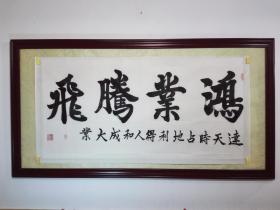 鴻業騰飛
達天時占地利得人和成大業